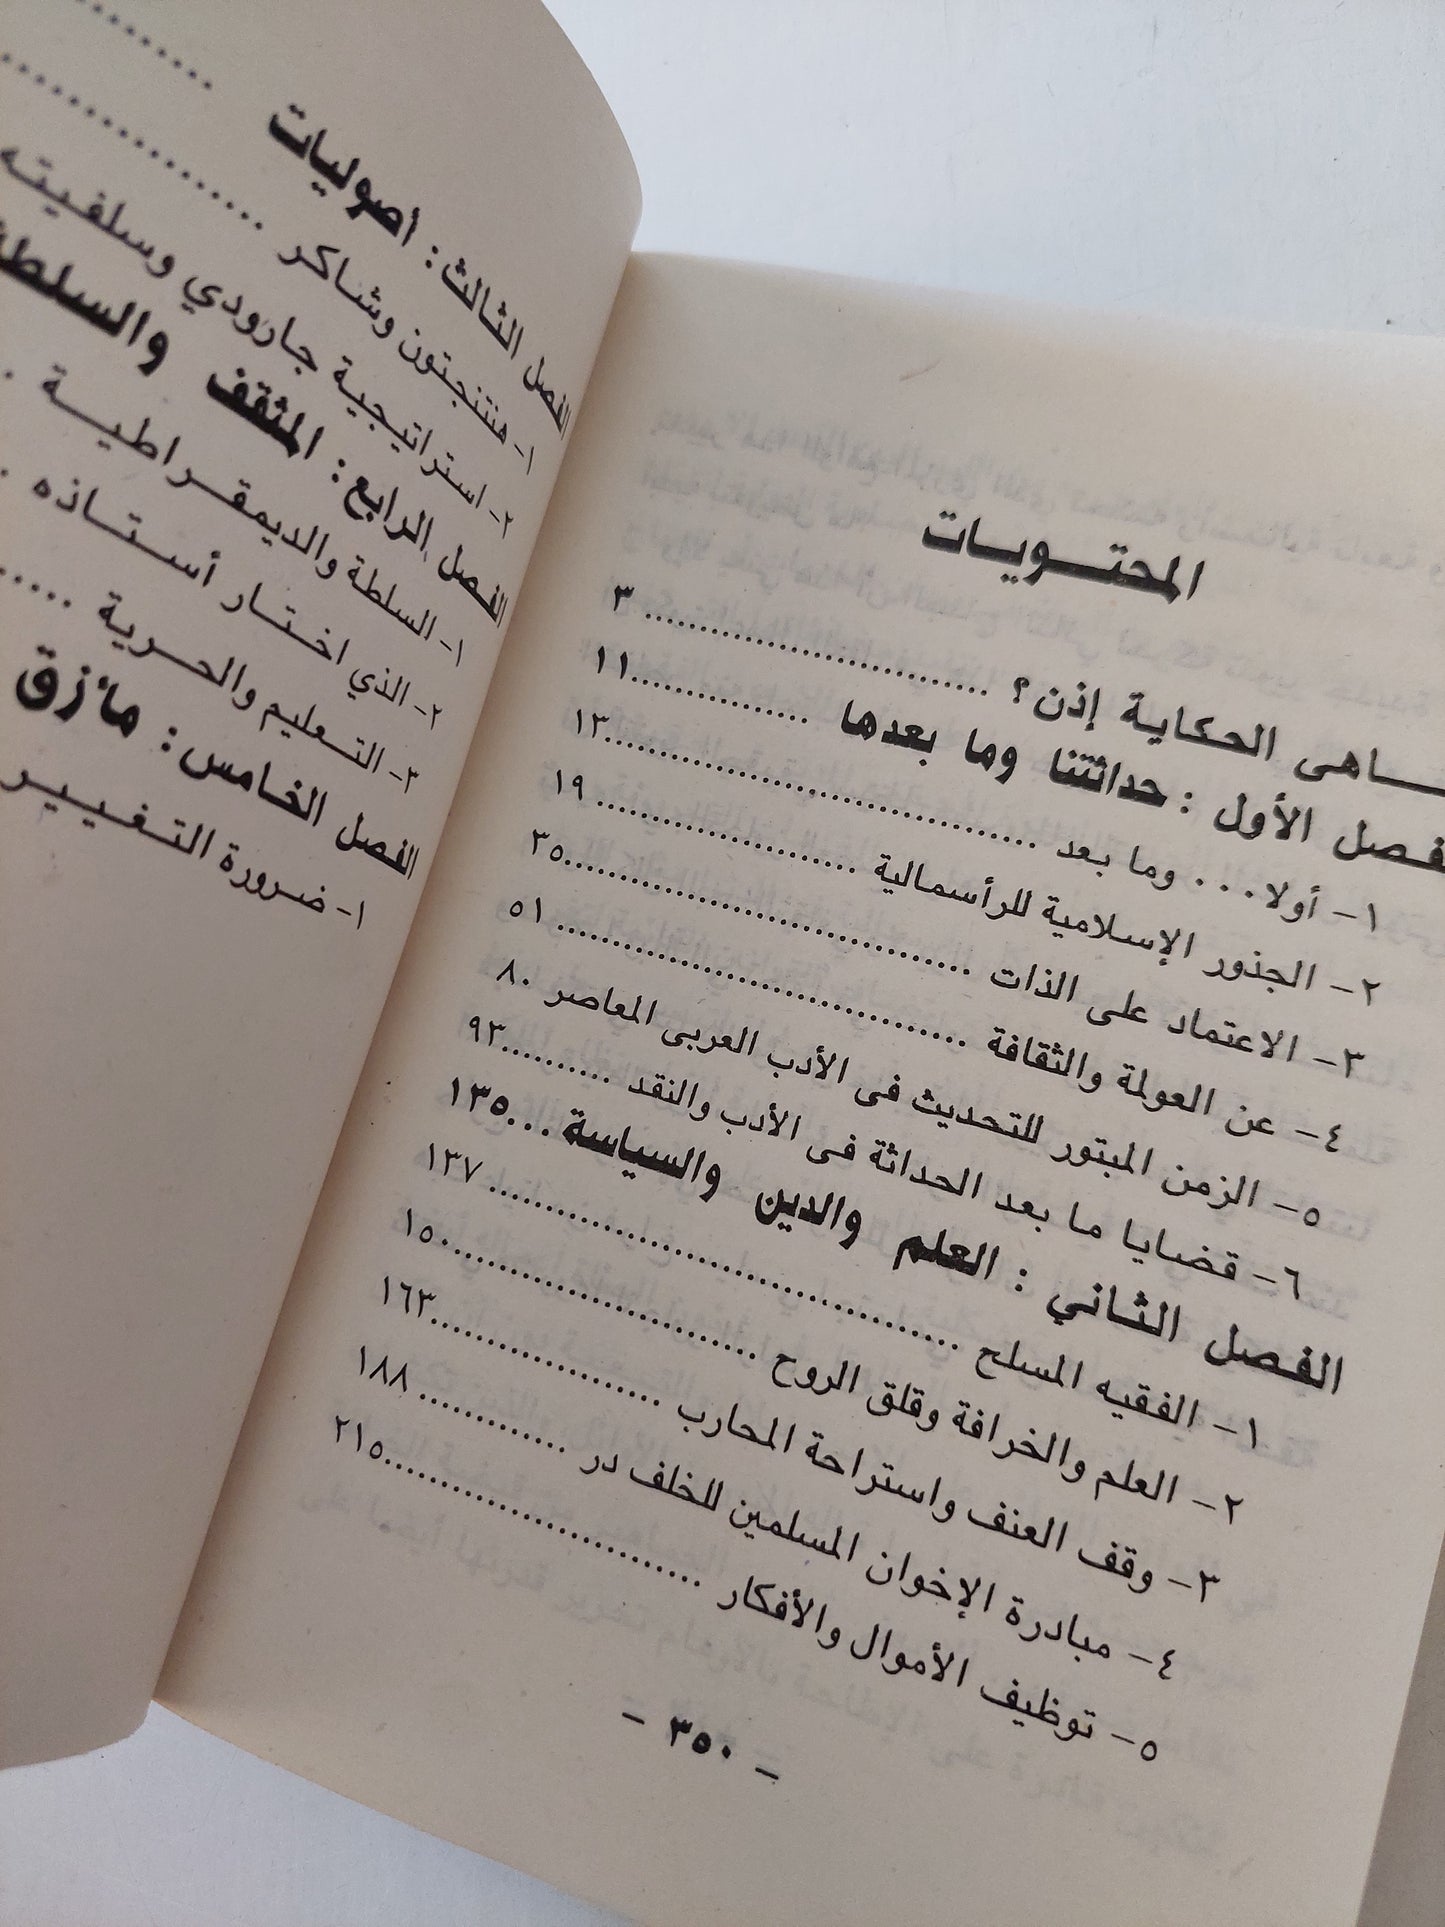 المحتويات
ـاهى الحكاية إذن؟ .......... ٣
فصل الأول : حداثتنا وما بعدها ..........١١
١- أولا... وما بعد ..........١٣
٢- الجذور الإسلامية للرأسمالية .......... ١٩
٣- الاعتماد على الذات ..........٣٥
٤- عن العولمة والثقافة .......... ٥١
٥- الزمن المبتور للتحديث فى الأدب العربى المعاصر ٨٠
٦- قضايا ما بعد الحداثة فى الأدب والنقد ..........٩٣
الفصل الثاني : العلم والدين والسياسة ...١٣٥
١- الفقيه المسلح .......... ١٣٧
٢- العلم والخرافة وقلق الروح ..........١٥٠
٣- وقف العنف واستراحة المحارب ..........١٦٣
٤- مبادرة الإخوان المسلمين للخلف در .......... ١٨٨
٥- توظيف الأموال والأفكار ..........٢١٥
- ٣٥٠ -
الفصل الثالث: أصوليات ..........
١- هنتنجتون وشاكر ..........
٢- استراتيجية جارودي وسلفيته
الفصل الرابع: المثقف والسلطة
١- السلطة والديمقراطية ..
٢- الذي اختار أستاذه .
٣- التعليم والحرية .....
الفصل الخامس: مأزق
١- ضرورة التغيير